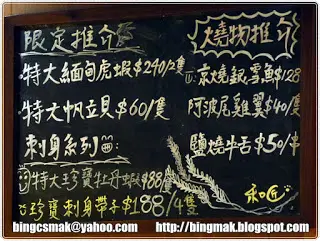 限定推介
特大緬甸虎蝦$240/隻
特大帆立貝$60/隻
刺身系列:
特大珍寶牡丹蝦$88/隻
珍寶刺身帶子$188/4隻
燒物推介
京燒銀雪魚$128
阿波尾雞翼$40/隻
鹽燒牛舌$50/串
bingcsmak@yahoo.com
http://bingmak.blogspot.com